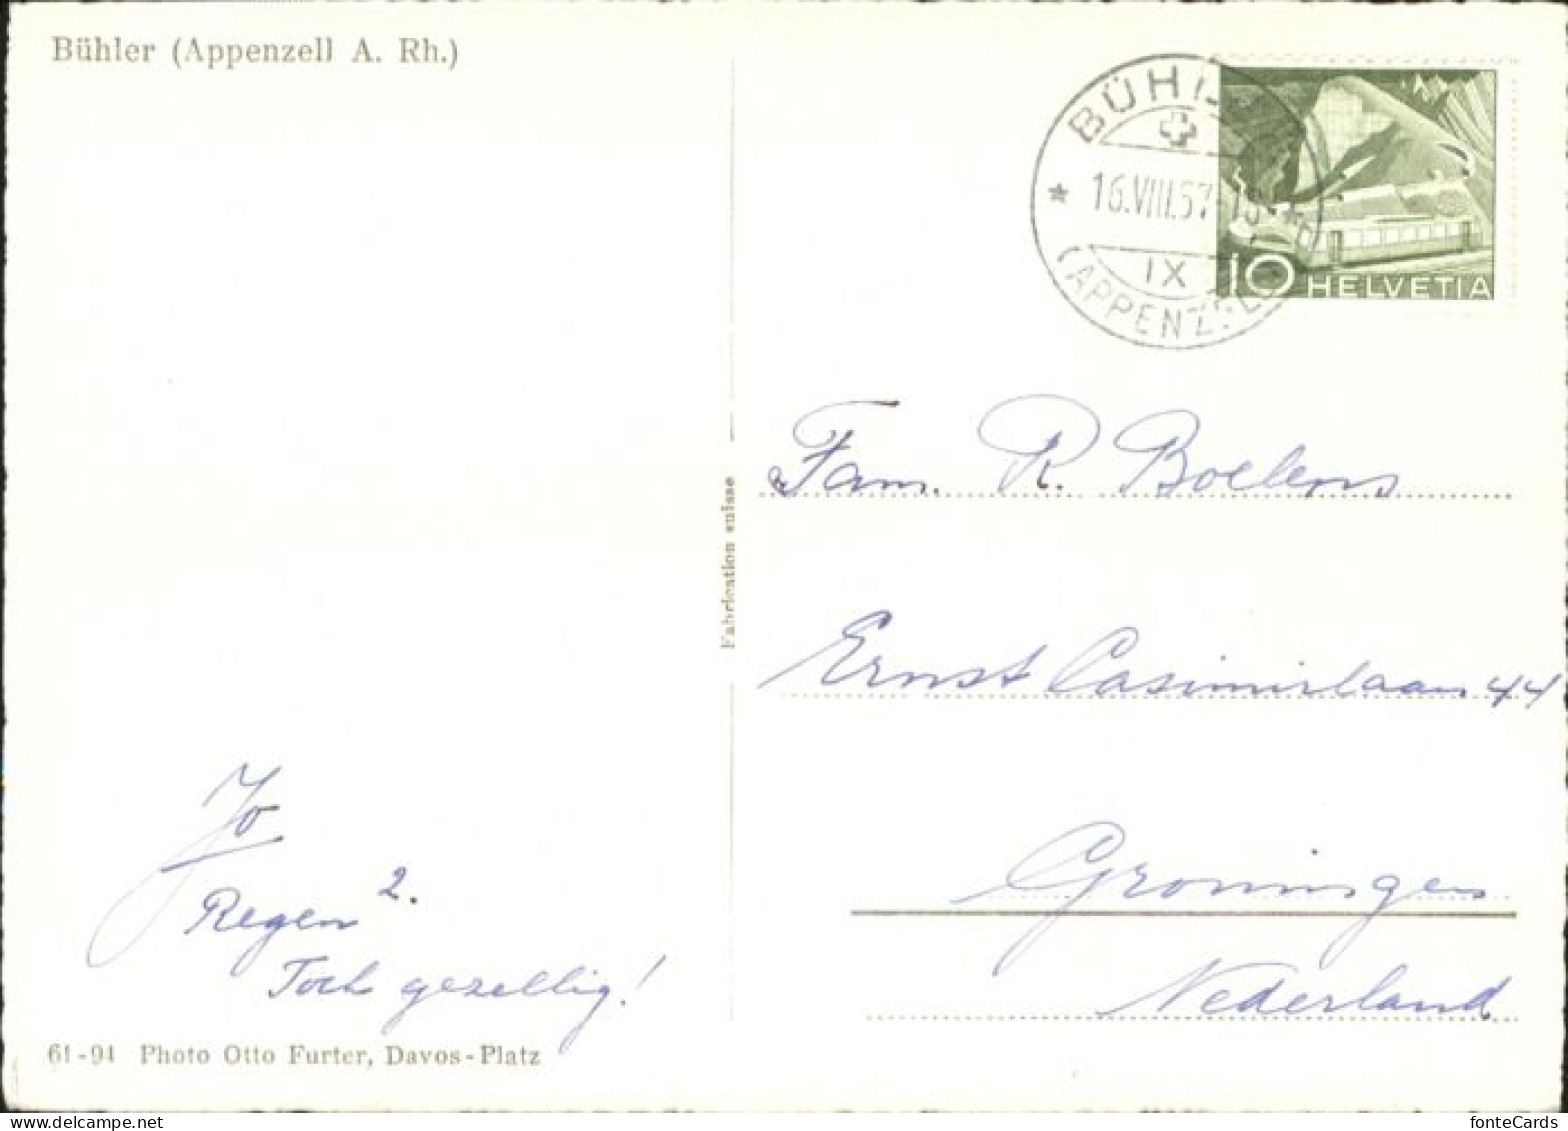 Bühler (Appenzell A. Rh.)
BÜHL
16.VIII.57-18
IX
(APPENZELL
10 HELVETIA
Fabrication suisse
Fam. R. Boelens
Ernst Casimirlaan 44
Groningen
Nederland
Jo
Regen 2.
Toch gezellig!
61-94 Photo Otto Furter, Davos-Platz
delcampe.net
fonteCards